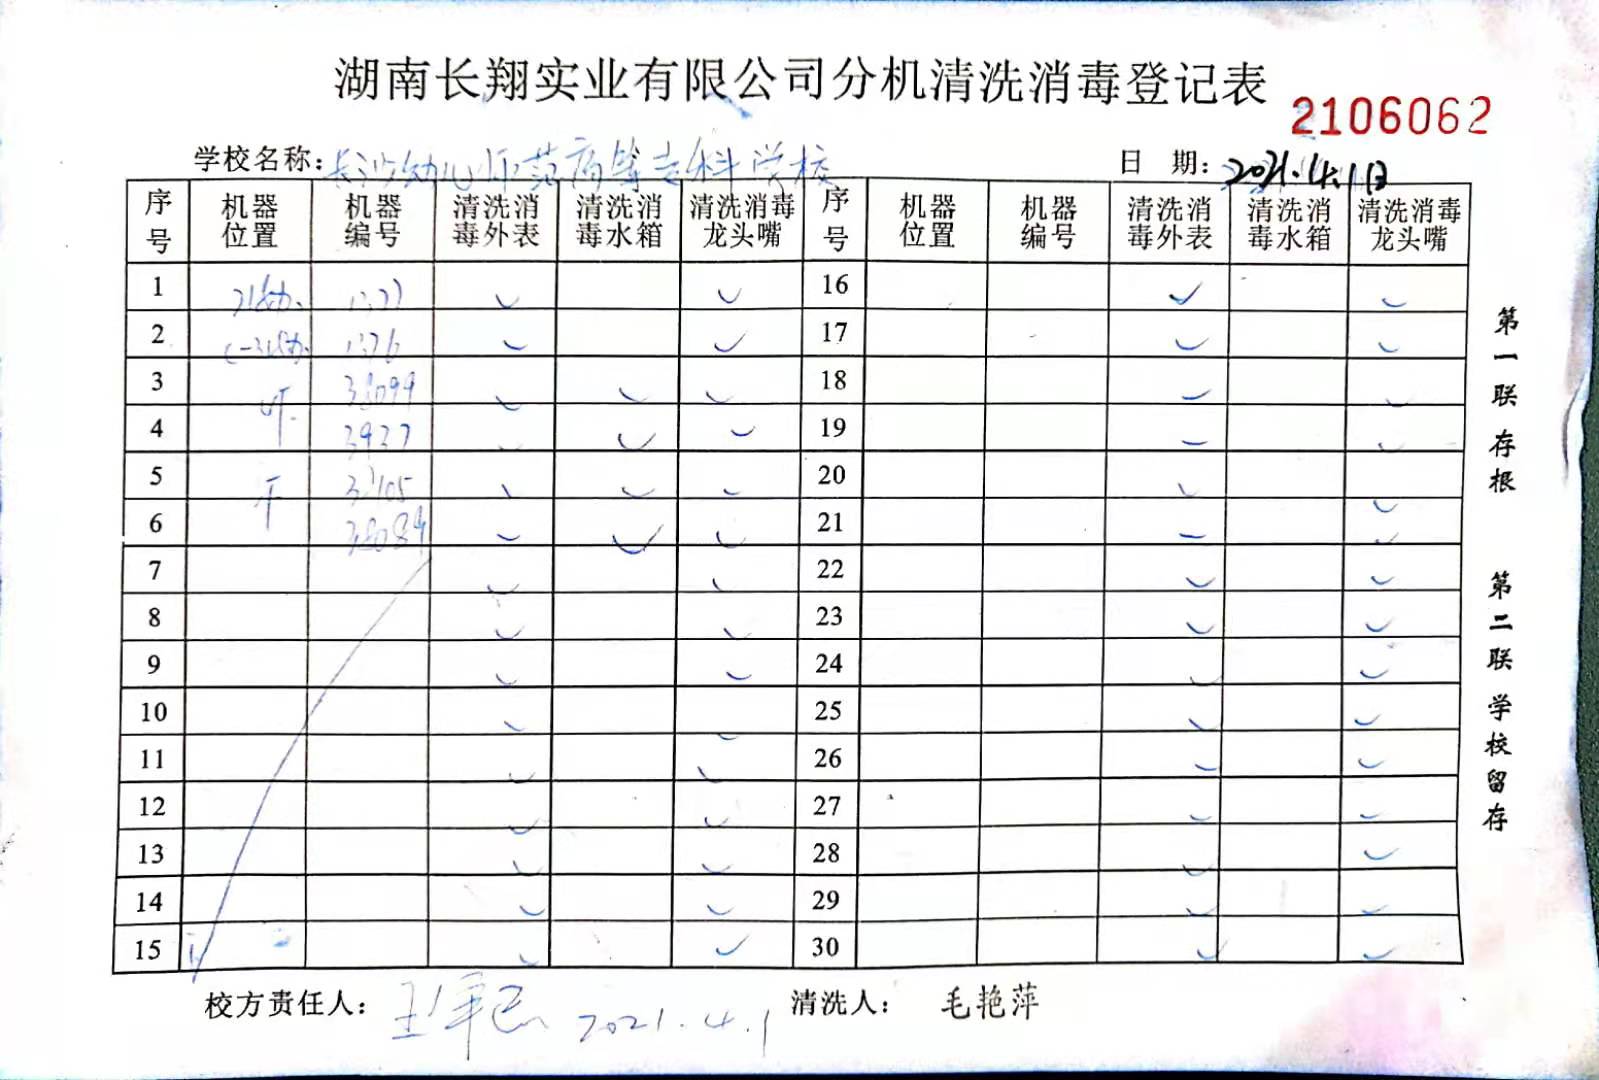 湖南长翔实业有限公司分机清洗消毒登记表
2106062
学校名称：长沙幼儿师范高等专科学校 日 期：2021.4.1日
序号 机器位置 机器编号 清洗消毒外表 清洗消毒水箱 清洗消毒龙头嘴 序号 机器位置 机器编号 清洗消毒外表 清洗消毒水箱 清洗消毒龙头嘴
1 ✓ ✓ 16 ✓ ✓
2 1376 ✓ ✓ 17 ✓ ✓
3 38099 ✓ ✓ ✓ 18 ✓ ✓
4 3937 ✓ ✓ ✓ 19 ✓ ✓
5 ✓ ✓ ✓ 20 ✓ ✓
6 38089 ✓ ✓ ✓ 21 ✓ ✓
7 ✓ ✓ 22 ✓ ✓
8 ✓ ✓ 23 ✓ ✓
9 ✓ ✓ 24 ✓ ✓
10 ✓ ✓ 25 ✓ ✓
11 ✓ ✓ 26 ✓ ✓
12 ✓ ✓ 27 ✓ ✓
13 ✓ ✓ 28 ✓ ✓
14 ✓ ✓ 29 ✓ ✓
15 ✓ ✓ 30 ✓ ✓
校方责任人： 2021.4.1 清洗人： 毛艳萍
第一联存根 第二联学校留存